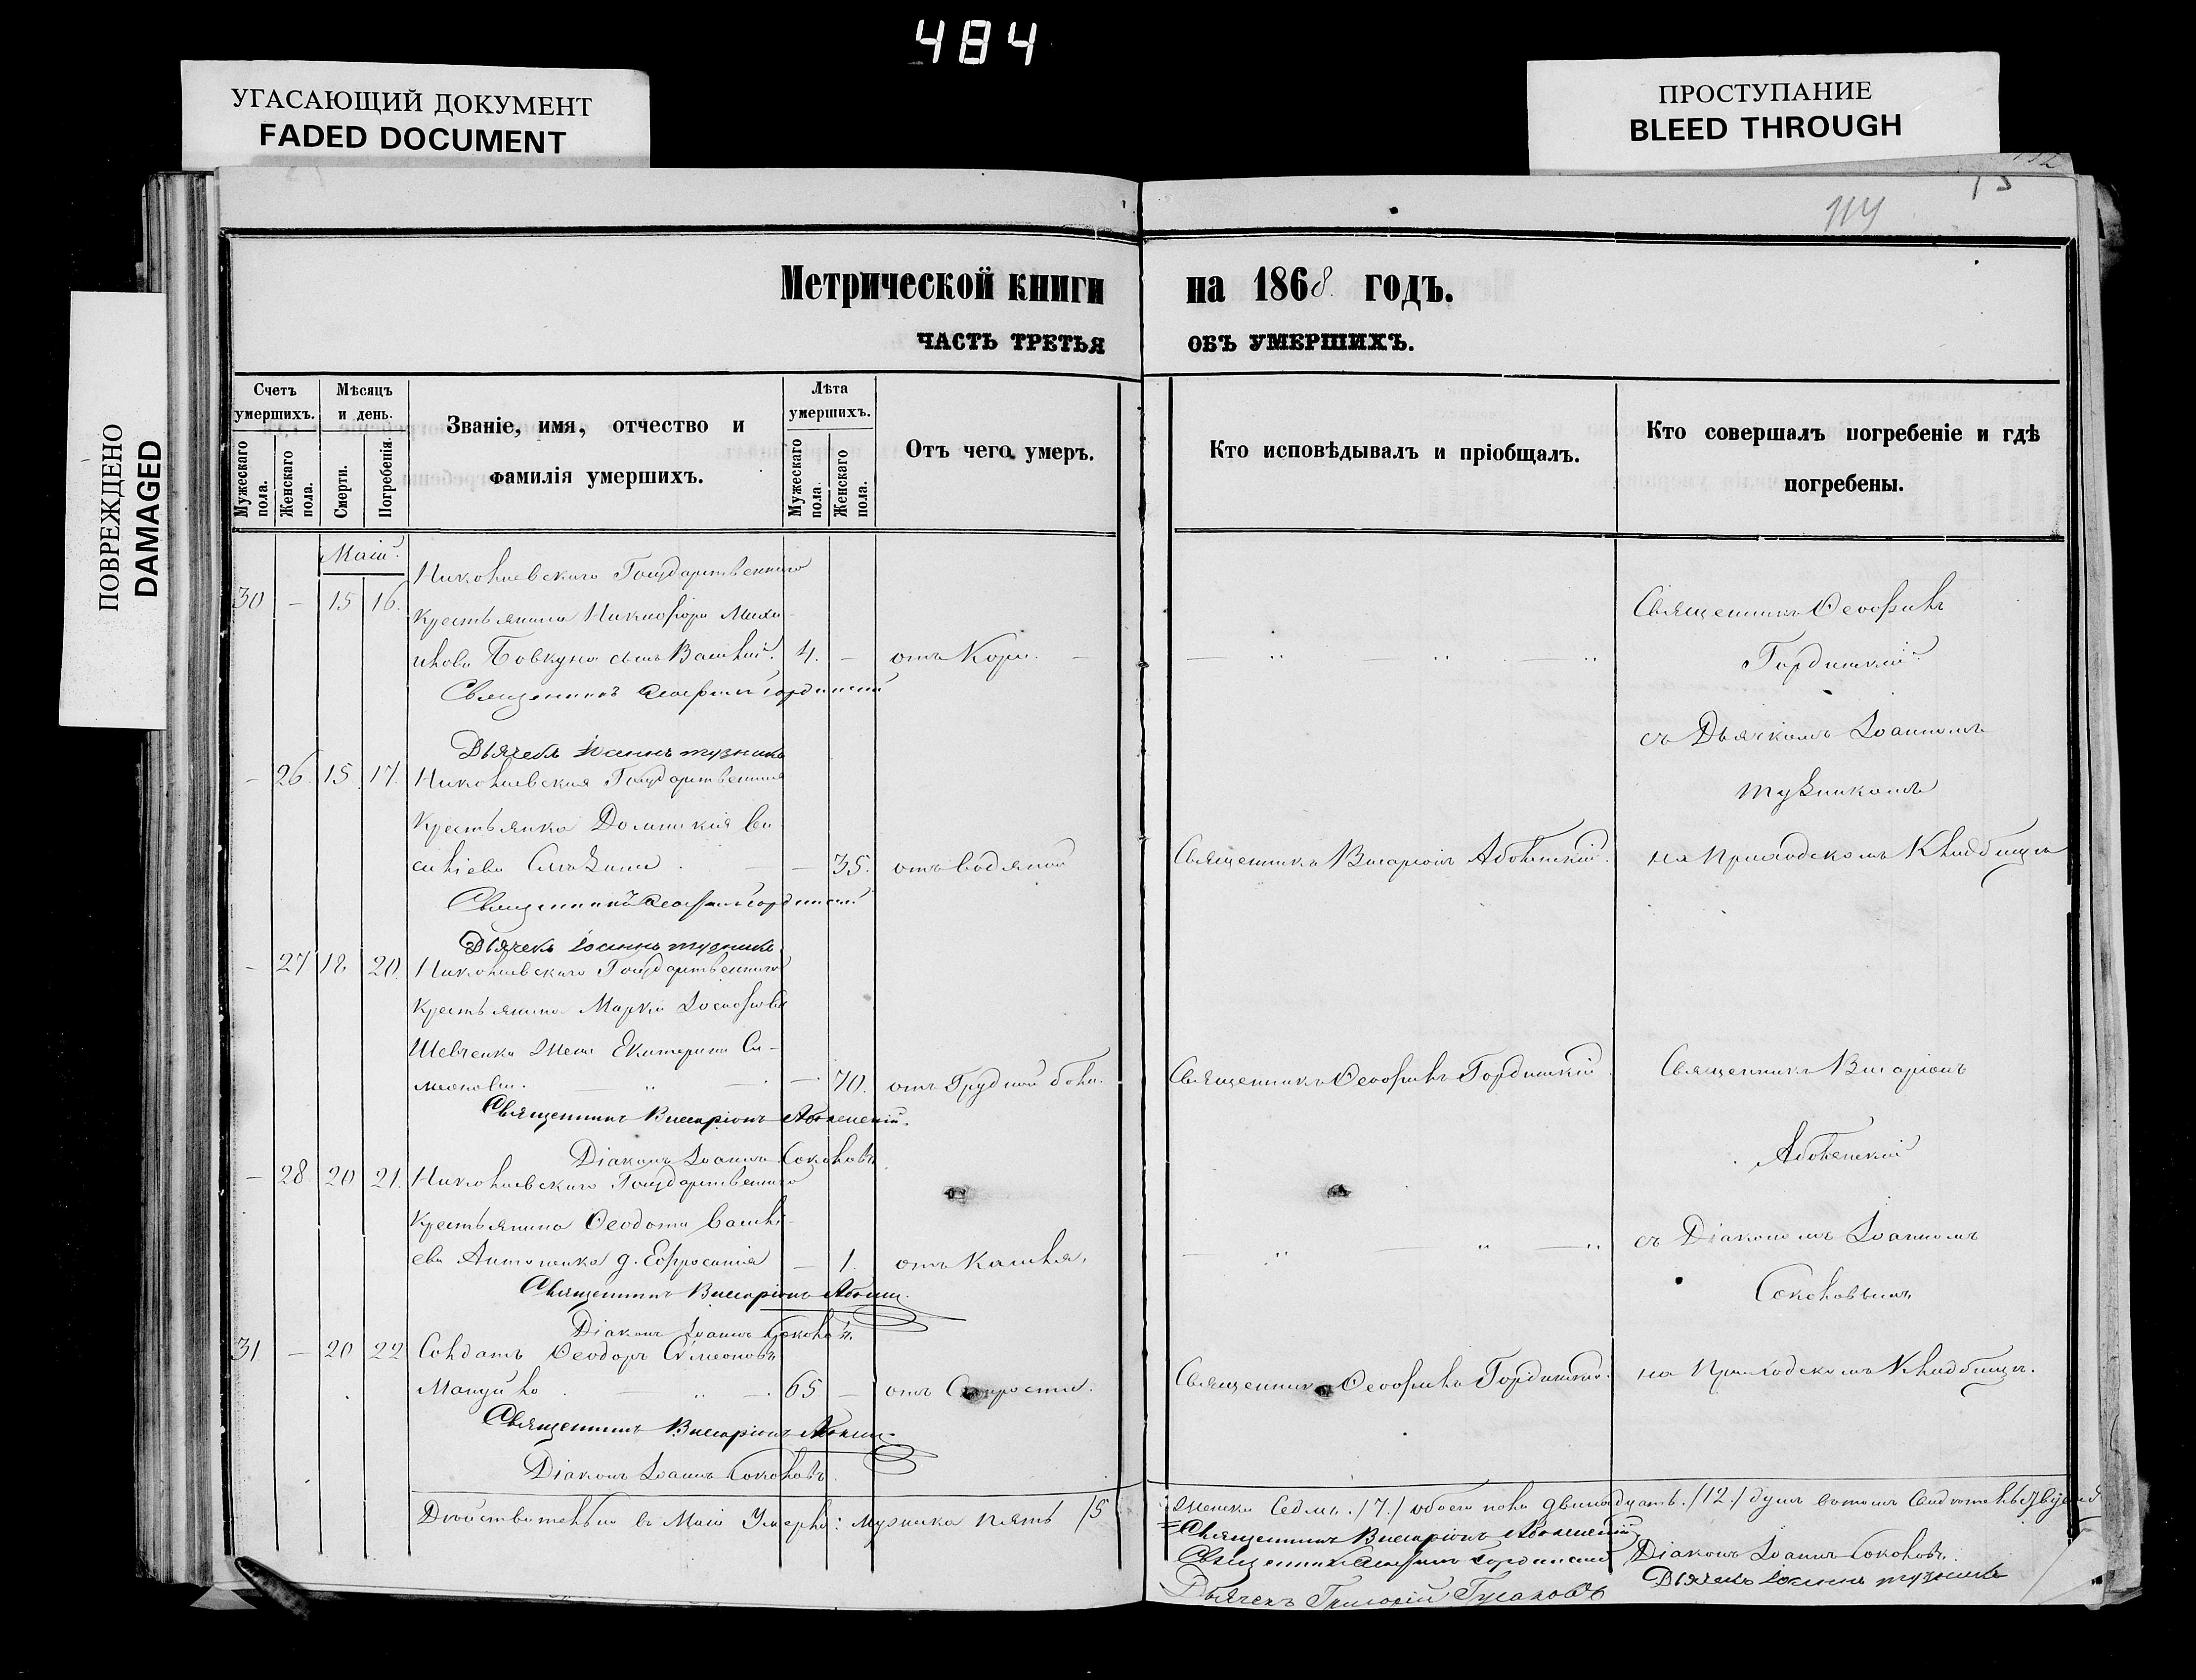 484
УГАСАЮЩИЙ ДОКУМЕНТ
FADED DOCUMENT
ПРОСТУПАНИЕ
BLEED THROUGH
ПОВРЕЖДЕНО
DAMAGED
114
Метрической книги на 1868. годъ.
ЧАСТЬ ТРЕТЬЯ ОБЪ УМЕРШИХЪ.
Счетъ умершихъ.
Мужескаго пола.
Женскаго пола.
Мѣсяцъ и день.
Смерти.
Погребенія.
Званіе, имя, отчество и
фамилія умершихъ.
Лѣта умершихъ.
Мужескаго пола.
Женскаго пола.
Отъ чего умеръ.
Кто исповѣдывалъ и пріобщалъ.
Кто совершалъ погребеніе и гдѣ
погребены.
Маій.
30 — 15 16. Николаевскаго Государственнаго
крестьянина Никифора Михаи-
лова Бовкуна сынъ Василій. 4. — отъ Кори. —
Священникъ Ѳеофилъ Гординскій
Дьячекъ Іоаннъ Тузникъ
Священникъ Ѳеофилъ
Гординскій
съ Дьячкомъ Іоанномъ
Тузникомъ
на Приходскомъ Кладбищѣ
— 26. 15. 17. Николаевская Государственная
Крестьянка Домникія Ва-
силіева — 35. отъ водяной Священникъ Виссаріонъ
Священникъ Ѳеофилъ Гординскій
Дьячекъ Іоаннъ Тузникъ
— 27 18. 20. Николаевскаго Государственнаго
Крестьянина Марка Іосифова
Шевченка жена Екатерина Си-
меонова. — 70. отъ Грудной боли. Священникъ Ѳеофилъ Гординскій.
Священникъ Виссаріонъ
Діаконъ Іоаннъ Соколовъ
Священникъ Виссаріонъ
съ Діакономъ Іоанномъ
Соколовымъ
на Приходскомъ Кладбищѣ.
— 28. 20 21. Николаевскаго Государственнаго
Крестьянина Ѳеодота Василі-
ева Антоненка д. Евфросинія — 1. отъ Кашля.
Священникъ Виссаріонъ
Діаконъ Іоаннъ Соколовъ
31 — 20 22 Солдатъ Ѳеодоръ Сѵмеоновъ
Мануйло. 65 — отъ Старости. Священникъ Ѳеофилъ Гординскій.
Священникъ Виссаріонъ
Діаконъ Іоаннъ Соколовъ.
Дѣйствительно въ Маіѣ Умерло: мужеска пять /5
женска Седмь. /7./ обоего пола двенадцать. /12./ душъ въ томъ
Священникъ Виссаріонъ
Священникъ Ѳеофилъ Гординскій Діаконъ Іоаннъ Соколовъ.
Дьячекъ Григорій Гусаковъ Дьячекъ Іоаннъ Тузникъ